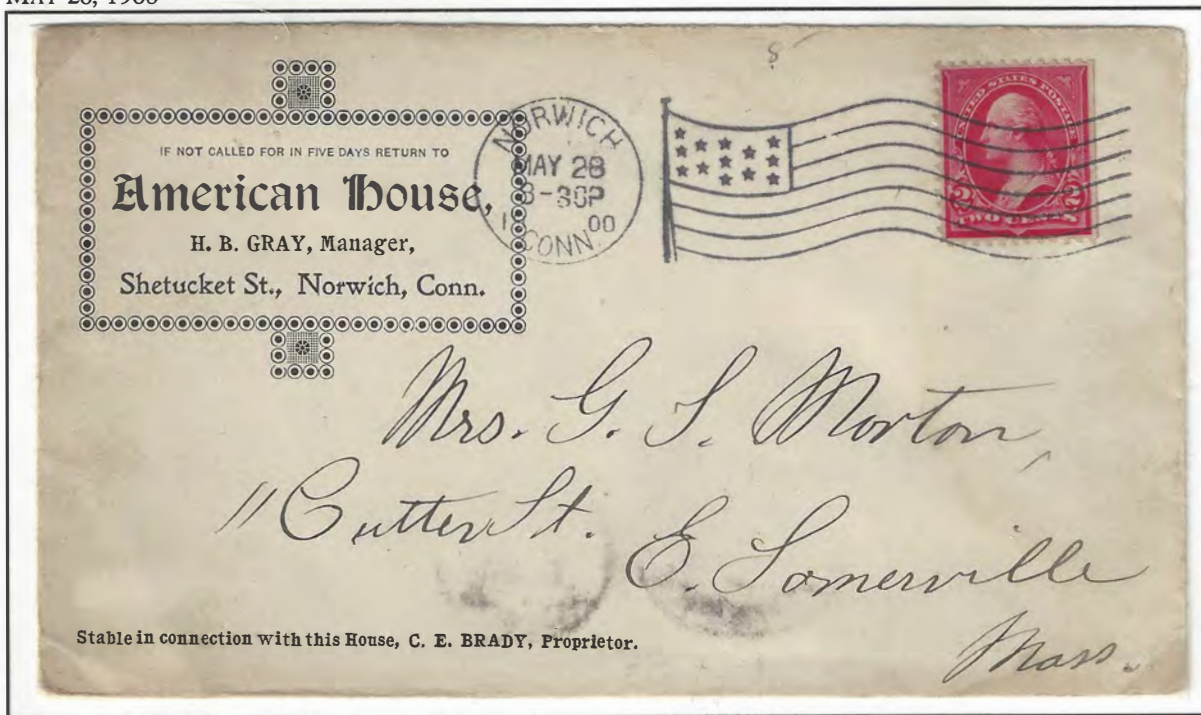 IF NOT CALLED FOR IN FIVE DAYS RETURN TO
American House,
H. B. GRAY, Manager,
Shetucket St., Norwich, Conn.
NORWICH
MAY 28
00
CONN.
UNITED STATES POSTAGE
2 2
TWO CENTS
Mrs. G. S. Morton,
11 Cutter St.
E. Somerville
Mass.
Stable in connection with this House, C. E. BRADY, Proprietor.